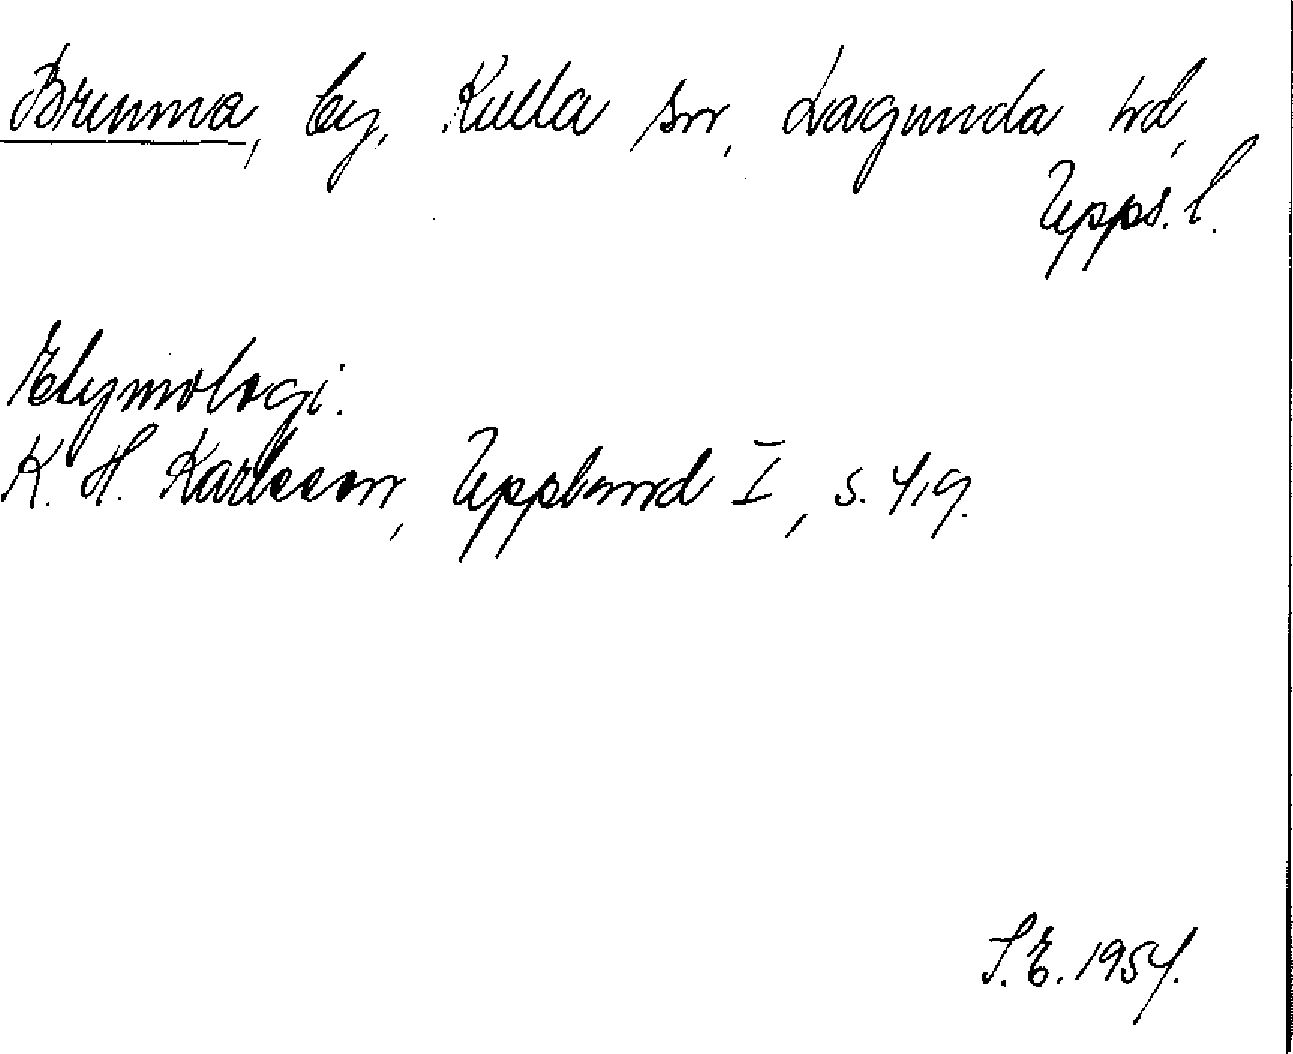 Brunna, by, Kulla sn, Lagunda hd,
Upps. l.
Etymologi.
K. H. Karlsson, Uppland I, s. 419.
S.E. 1954.